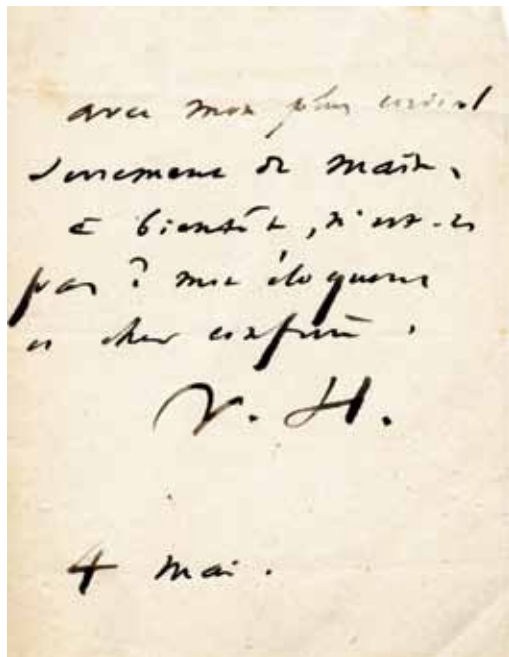 avec mon plus cordial
serrement de main.
à bientôt, n'est-ce
pas ? mon éloquent
et cher confrère.
V. H.
4 mai.